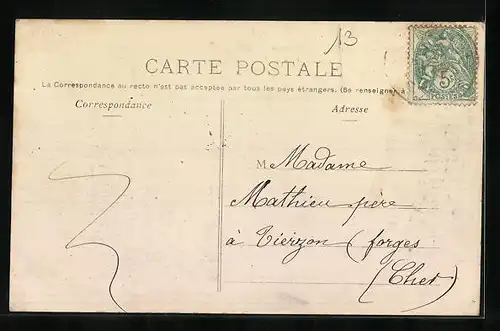 13
CARTE POSTALE
La Correspondance au recto n'est pas acceptée par tous les pays étrangers. (Se renseigner à
Correspondance
Adresse
5
M Madame
Mathieu père
à Vierzon (forges
(Cher)